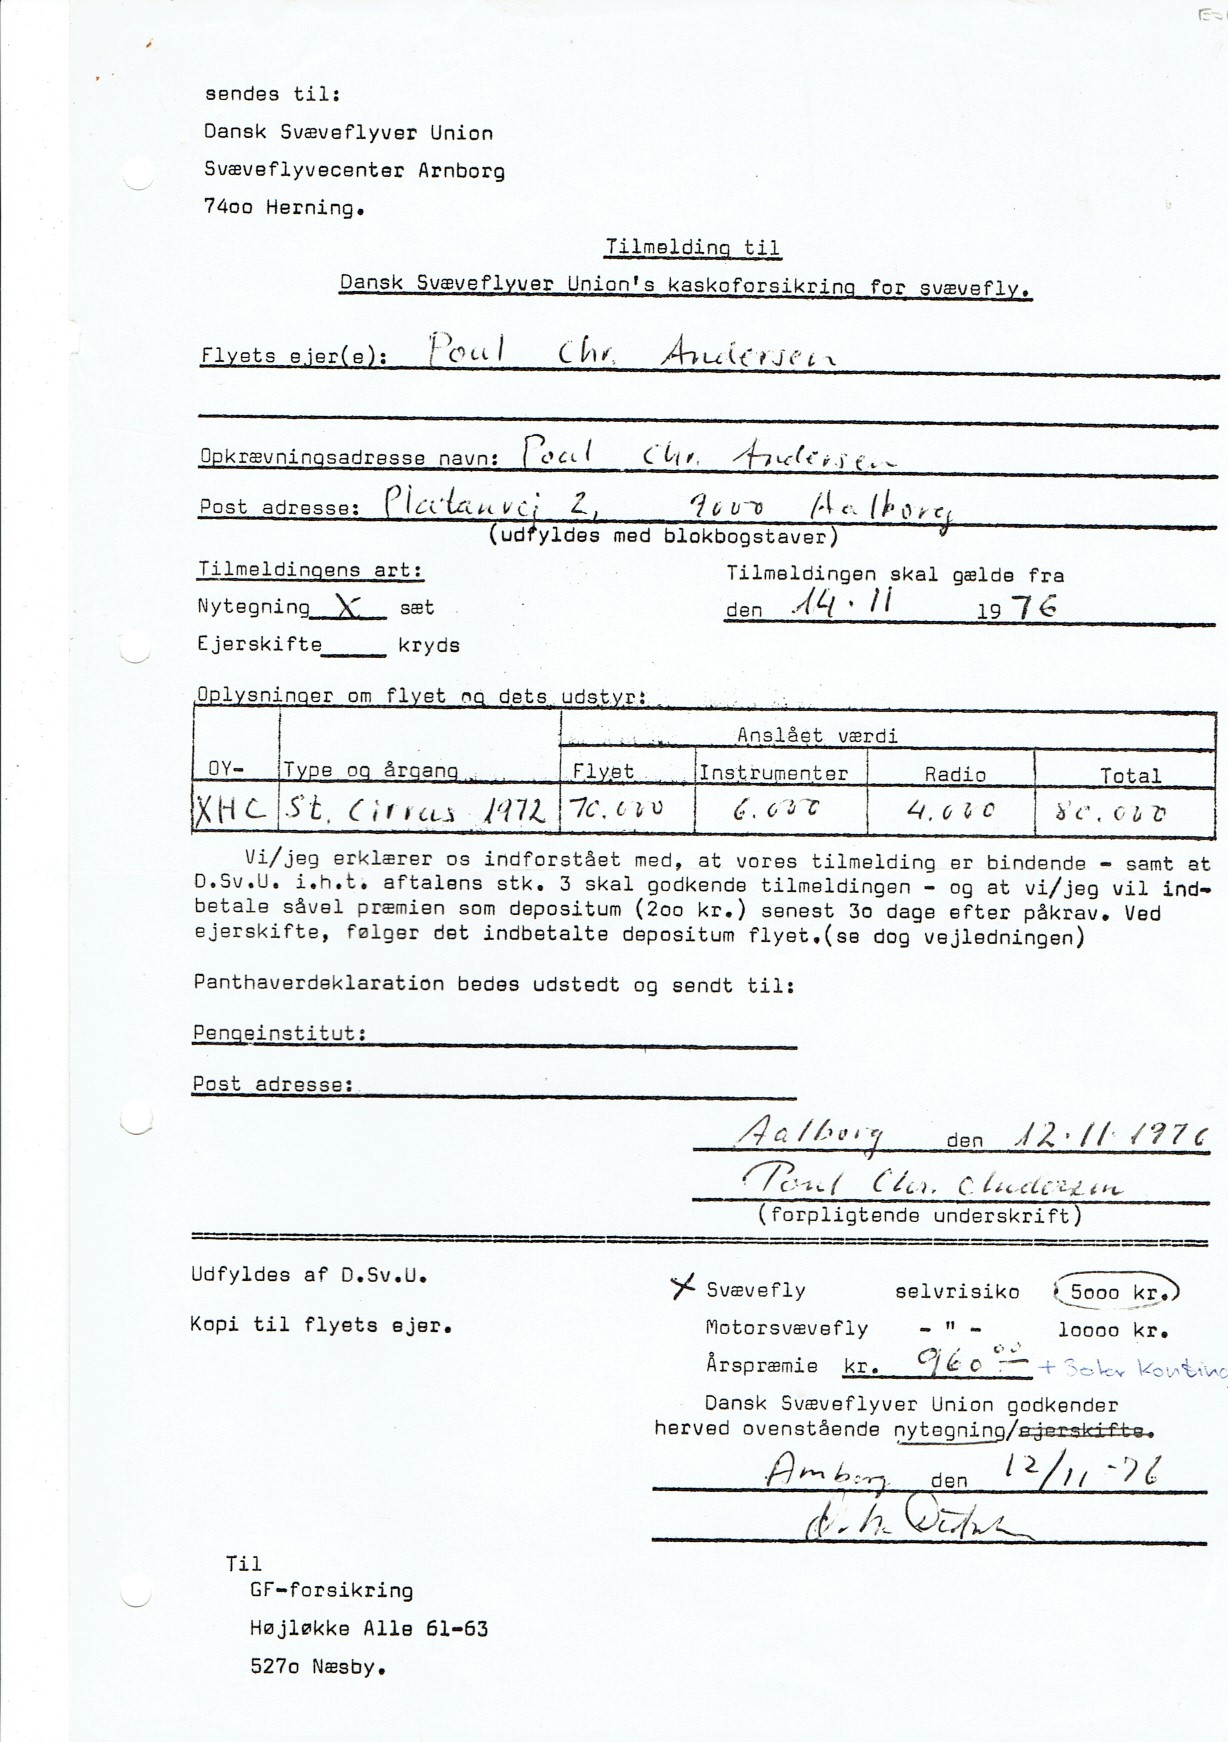 sendes til:
Dansk Svæveflyver Union
Svæveflyvecenter Arnborg
74oo Herning.
Tilmelding til
Dansk Svæveflyver Union's kaskoforsikring for svævefly.
Flyets ejer(e): Poul Chr. Andersen
Opkrævningsadresse navn: Poul Chr. Andersen
Post adresse: Platanvej 2, 9000 Aalborg
(udfyldes med blokbogstaver)
Tilmeldingens art: Tilmeldingen skal gælde fra
Nytegning X sæt den 14.11 1976
Ejerskifte kryds
Oplysninger om flyet og dets udstyr:
Anslået værdi
OY- Type og årgang Flyet Instrumenter Radio Total
XHC St. Cirrus 1972 70.000 6.000 4.000 80.000
Vi/jeg erklærer os indforstået med, at vores tilmelding er bindende - samt at
D.Sv.U. i.h.t. aftalens stk. 3 skal godkende tilmeldingen - og at vi/jeg vil ind-
betale såvel præmien som depositum (2oo kr.) senest 3o dage efter påkrav. Ved
ejerskifte, følger det indbetalte depositum flyet.(se dog vejledningen)
Panthaverdeklaration bedes udstedt og sendt til:
Pengeinstitut:
Post adresse:
Aalborg den 12.11.1976
Poul Chr. Andersen
(forpligtende underskrift)
Udfyldes af D.Sv.U.
X Svævefly selvrisiko 5ooo kr.
Kopi til flyets ejer.
Motorsvævefly - " - loooo kr.
Årspræmie kr. 960 00 +
Dansk Svæveflyver Union godkender
herved ovenstående nytegning/ejerskifte.
Arnborg den 12/11-76
Til
GF-forsikring
Højløkke Alle 61-63
527o Næsby.